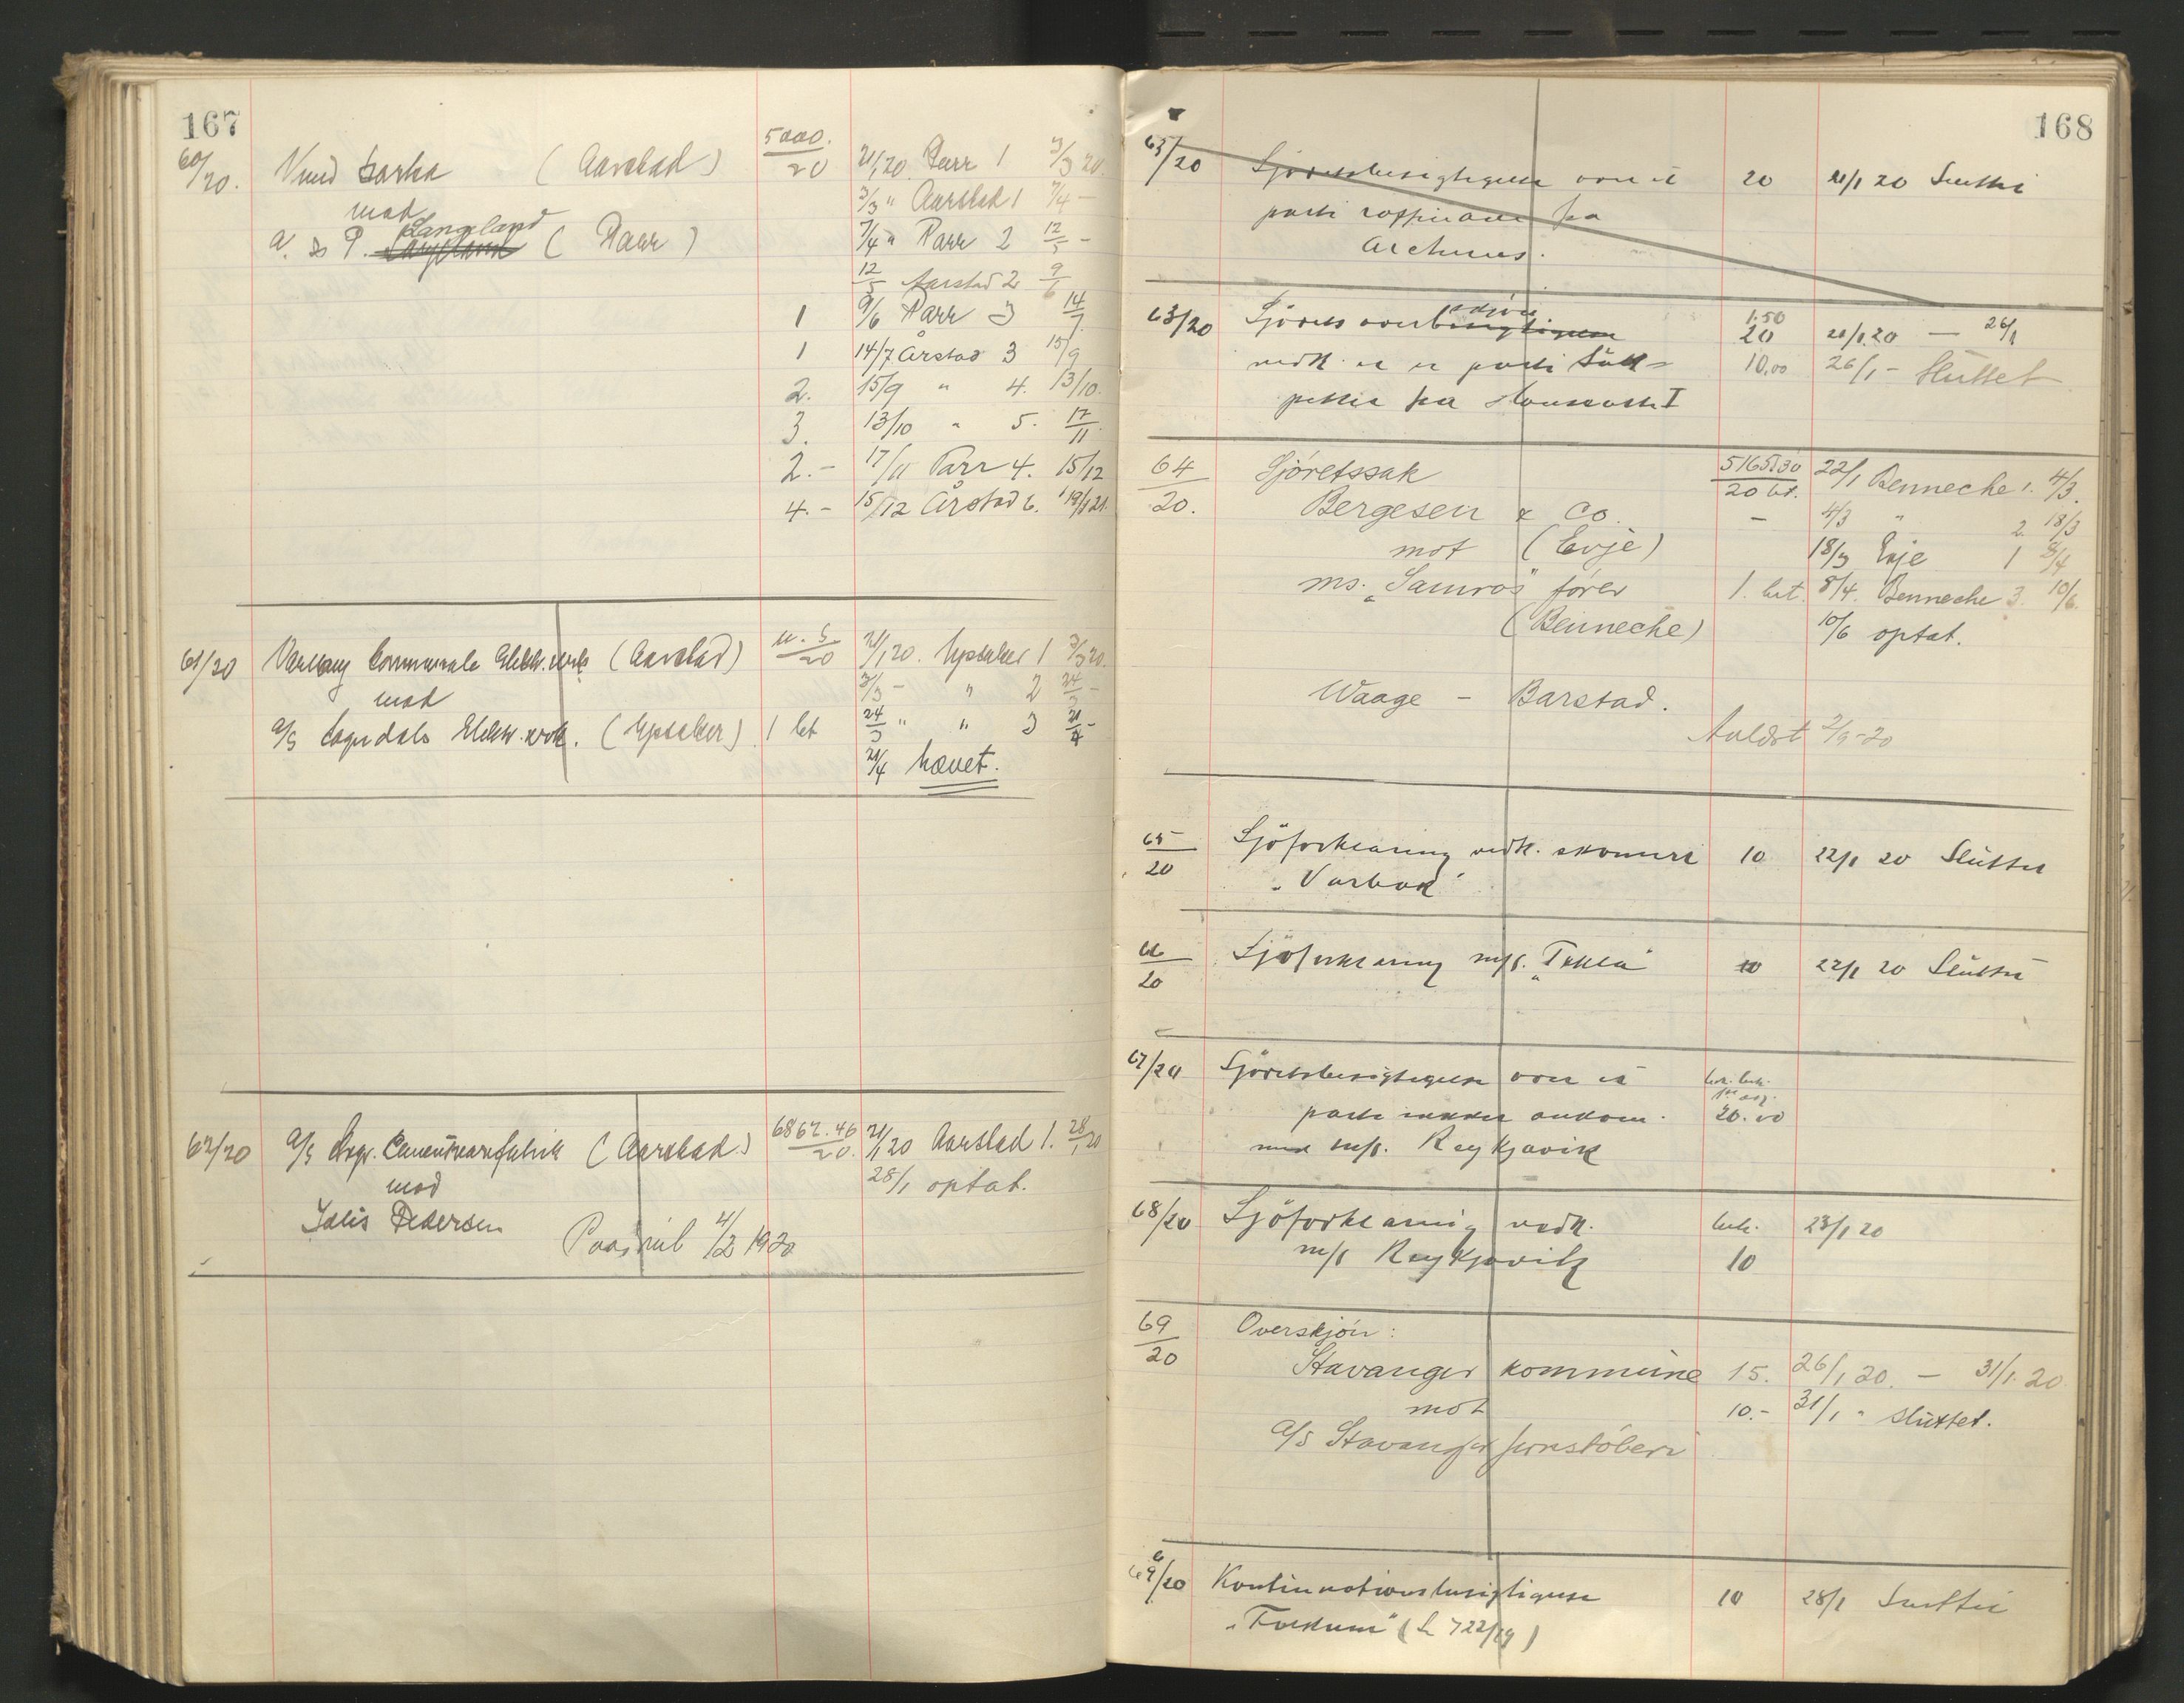 167
60/20. Knud Isaksen (Aarstad) 5000./20 21/1 20. Parr 1 3/3 20.
mod 3/3 " Aarstad 1 7/4 -
Langeland
a. s P. (Paar) 7/4 " Parr 2 12/5 -
12/5 Aarstad 2 9/6
1 9/6 Parr 3 14/7
1 14/7 Årstad 3 15/9
2. 15/9 " 4. 13/10.
3. 13/10 " 5. 17/11.
2.- 17/11 Parr 4. 15/12
4.- 15/12 Årstad 6. 19/1 21.
61/20 Varhaug Communale Elektr.verk (Aarstad) u.s./20 21/1 20. Epsaker 1 3/3 20.
mod 3/3 - " 2 24/3 -
a/s Sogndals Elektr.verk. (Epsaker). 1 let 24/3 " " 3 21/4 -
21/4 hævet.
62/20 a/s Cementvarefabrik (Aarstad) 6862.46/20. 21/1 20 Aarstad 1. 28/1 20
mod 28/1 optat.
Pedersen
4/2 1920
168
63/20 Sjøretsbesigtigelse over et 20 21/1 20 Sluttet
parti fra
63/20 skjøn 1.50
Sjørets over 20 21/1.20 — 26/1
vedk. et parti 10.00 26/1 - Sluttet
fra
64/20. Sjøretssak 5165.30/20 bt. 22/1 Benneche 1. 4/3.
Bergesen & Co. - 4/3 " 2. 18/3
mot (Evje) 18/3 Evje 1 8/4
ms. „Samvos" fører 1. let. 8/4. Benneche 3. 10/6.
(Benneche) 10/6 optat.
Waage - Barstad.
2/9-20
65/20 Sjøforklaring vedk. 10 22/1 20 Sluttet
„Varbak"
66/20 Sjøforklaring m/s. „Tekla" 10 22/1 20 Sluttet
67/20 Sjøretsbesigtigelse over et
parti sukker ankom. 20.00
med m/s. Reykjavik
68/20 Sjøforklaring vedk. bet. 23/1 20
m/s Reykjavik 10
69/20 Overskjøn:
Stavanger kommune 15. 26/1 20. — 31/1. 20
mot 10.- 31/1 - sluttet.
a/s Stavanger jernstøberi
69/20 Kontinuationsbesigtigelse 10 28/1 Sluttet
„Folkum" (L 722/19)